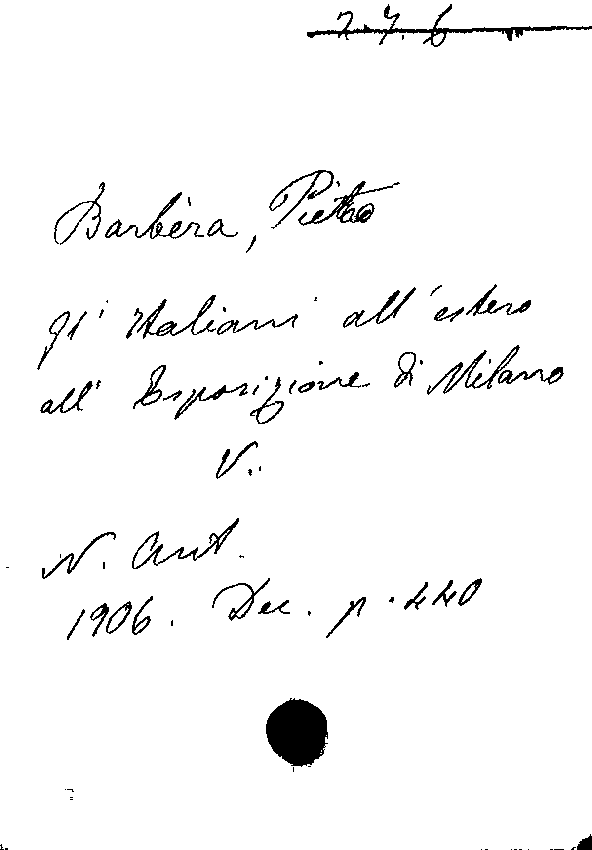 2.7.6
Barbèra, Pietro
Gl' Italiani all'estero
all' Esposizione di Milano
V.
N. Ant.
1906. Dec. p. 440